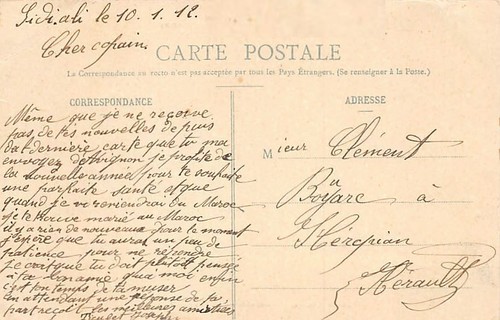 Sidi ali le 10.1.12.
Cher copain
CARTE POSTALE
La Correspondance au recto n'est pas acceptée par tous les Pays Étrangers. (Se renseigner à la Poste.)
CORRESPONDANCE
Même que je ne reçoive
pas de tes nouvelles depuis
la dernière carte que tu ma
envoyez d'Avignon je profite de
la nouvelle annee pour te souhaite
une parfaite sante et que
quand je reviendrai du Maroc
je te trouve marié au Maroc
il y a rien de nouveaux pour le moment
j'espère que tu auras un peu de
patience pour me répondre
je croit que tu doit plutot pensé
a ta que a moi enfin
c'est ton temps de t'amuser
en attendant une réponse de ta
part reçoit les meilleures amitiés
ADRESSE
Mieur Clément
Boyare à
Hérépian
Hérault